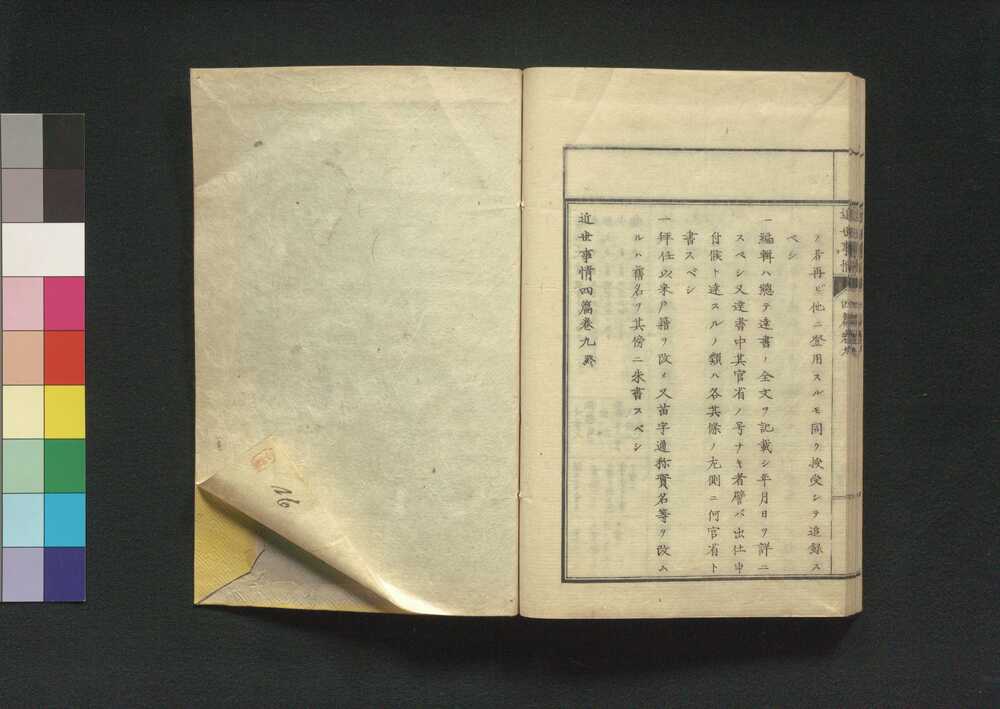 ノ者再ビ他ニ登用スルモ同ク授受シテ追録ス
ベシ
一編輯ハ總テ達書ノ全文ヲ記載シ年月日ヲ詳ニ
スベシ又達書中其官省ノ号ナキ者譬バ出仕申
付候ト達スルノ類ハ各其條ノ左側ニ何官省ト
書スベシ
一拜任以来戸籍ヲ改メ又苗字通称實名等ヲ改ム
ルハ舊名ヲ其傍ニ朱書スベシ
近世事情四篇卷九終
近世事情
四篇卷九
16